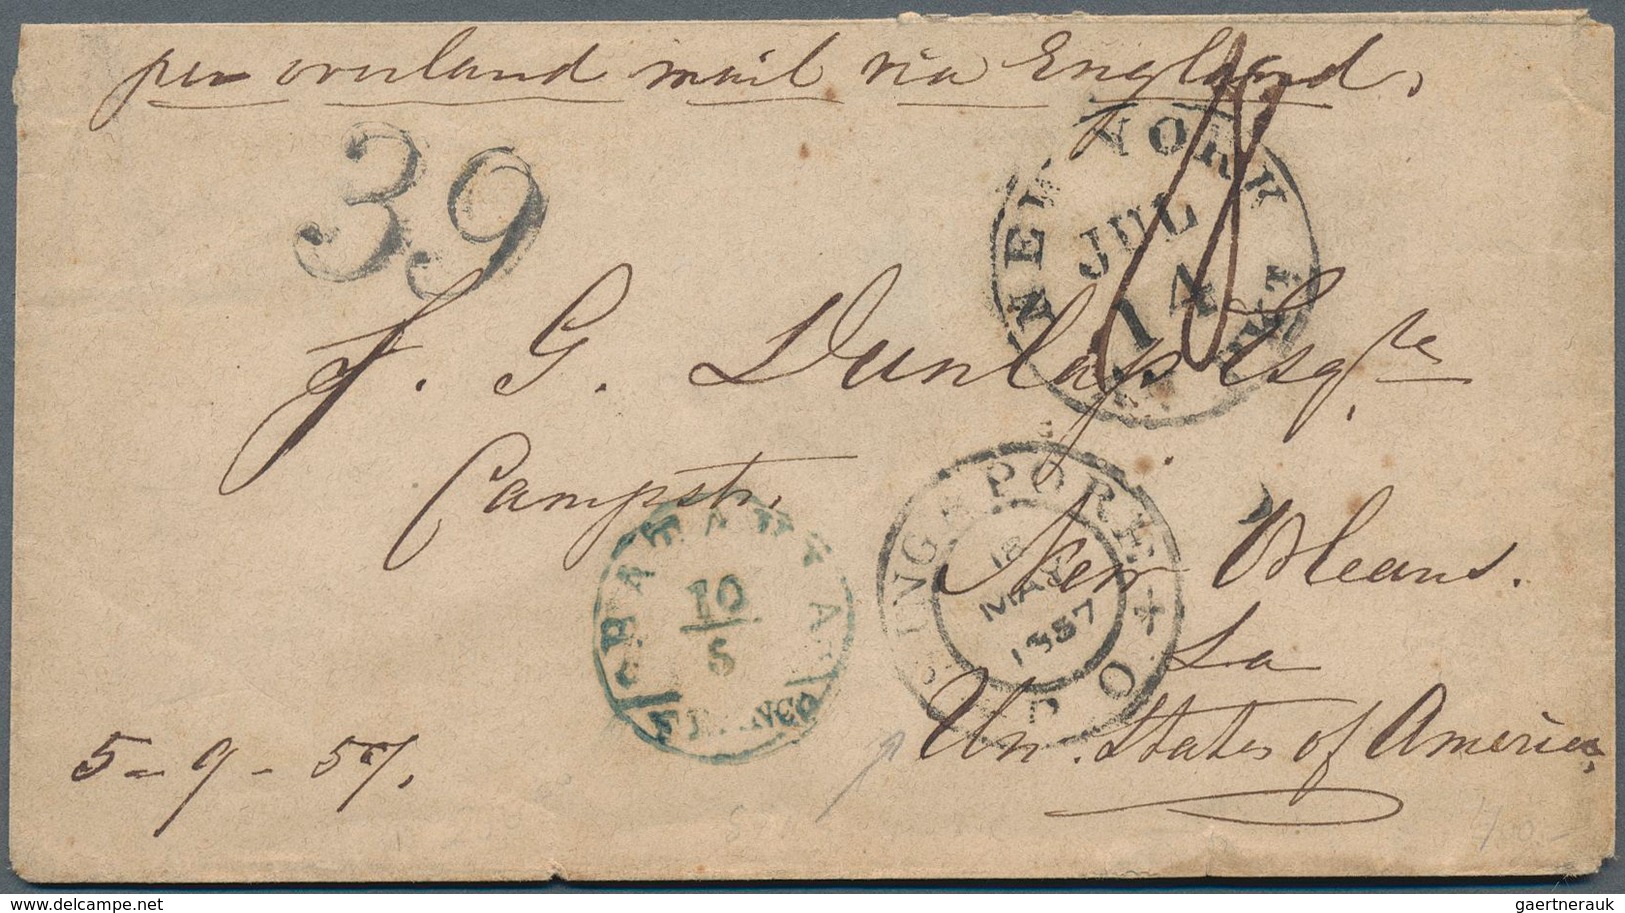 per overland mail via England.
39
NEW YORK
JUL
14
AM. PKT
J. G. Dunlap Esqre
Campstr.
New Orleans.
La
Un. States of America.
SINGAPORE P.O.
18
MAY
1857
BATAVIA
10/5
FRANCO
5-9-57.
delcampe.net
gaertnerauk